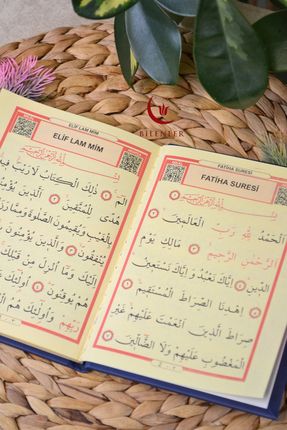 BİLENLER
FATİHA SURESİ
FATİHA SURESİ
اَلْحَمْدُ لِلّٰهِ رَبِّ الْعَالَمِينَ
الرَّحْمٰنِ الرَّحِيمِ مَالِكِ يَوْمِ
الدِّينِ اِيَّاكَ نَعْبُدُ وَاِيَّاكَ نَسْتَعِينُ
اِهْدِنَا الصِّرَاطَ الْمُسْتَقِيمَ
صِرَاطَ الَّذِينَ اَنْعَمْتَ عَلَيْهِمْ غَيْرِ
الْمَغْضُوبِ عَلَيْهِمْ وَلَا الضَّالِّينَ
ELİF LAM MİM
ELİF LAM MİM
الٓمٓ ذٰلِكَ الْكِتَابُ لَا رَيْبَ فِيهِ
هُدًى لِلْمُتَّقِينَ الَّذِينَ يُؤْمِنُونَ
بِالْغَيْبِ وَيُقِيمُونَ الصَّلٰوةَ وَمِمَّا
يُنْفِقُونَ وَالَّذِينَ يُؤْمِنُونَ
اِلَيْكَ وَمَا اُنْزِلَ مِنْ قَبْلِكَ
هُمْ يُوقِنُونَ اُولٰئِكَ
رَبِّهِمْ وَاُولٰئِكَ هُمُ